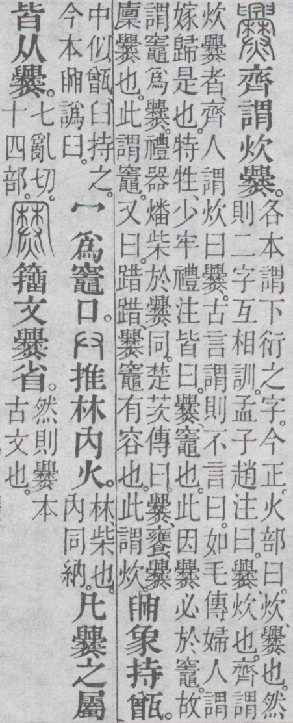 爨齊謂炊爨。
各本謂下衍之字。今正。火部曰。炊、爨也。然
則二字互相訓。孟子趙注曰。爨、炊也。齊謂
炊爨者、齊人謂炊曰爨。古言謂則不言曰。如毛傳婦人謂
嫁歸是也。特牲少牢禮注皆曰。爨、竈也。此因爨必於竈。故
謂竈爲爨。禮器燔柴於爨同。楚茨傳曰。爨、饔爨、
廩爨也。此謂竈。又曰。踖踖、爨竈有容也。此謂炊。
𦥑象持甑。
中似甑。臼持之。
今本𦥑譌臼。
冖爲竈口。𠬞推林內火。
林柴也。
內同納。
凡爨之屬
皆从爨。
七亂切。
十四部。
籒文爨省。
然則爨本
古文也。